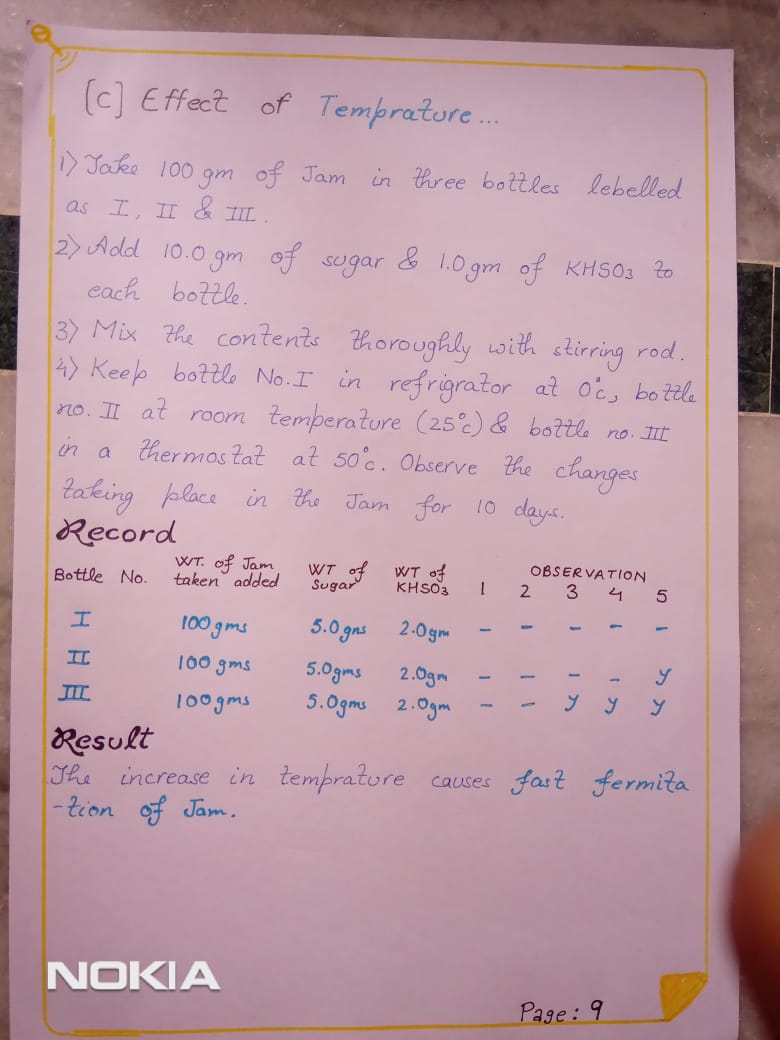 [C] Effect of Temprature...
1) Take 100 gm of Jam in three bottles lebelled
as I, II & III.
2) Add 10.0 gm of sugar & 1.0 gm of KHSO3 to
each bottle.
3) Mix the contents thoroughly with stirring rod.
4) Keep bottle No. I in refrigrator at 0°c, bottle
no. II at room temperature (25°c) & bottle no. III
in a thermostat at 50°c. Observe the changes
taking place in the Jam for 10 days.
Record
Bottle No. WT. of Jam taken added WT of Sugar WT of KHSO3 OBSERVATION
1 2 3 4 5
I 100gms 5.0gns 2.0gm - - - - -
II 100gms 5.0gms 2.0gm - - - - y
III 100gms 5.0gms 2.0gm - - y y y
Result
The increase in temprature causes fast fermita
-tion of Jam.
NOKIA
Page: 9